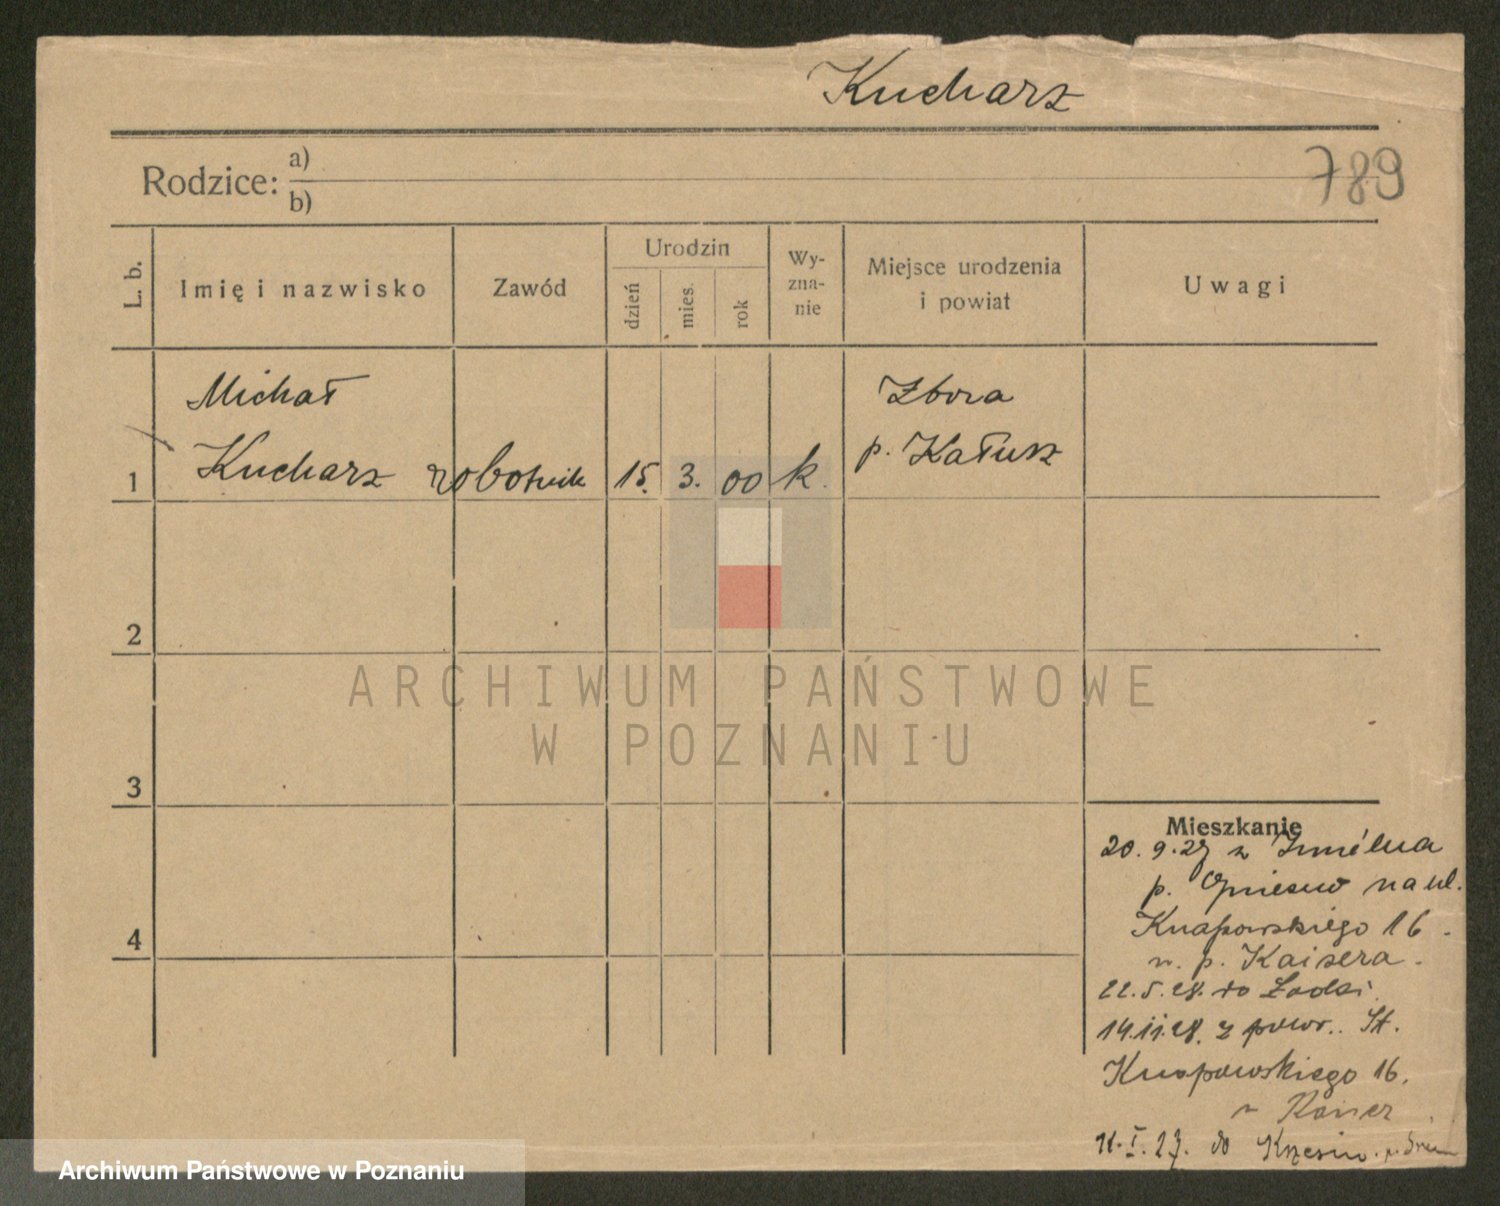 Kucharz
789
Rodzice: a)
b)
L. b.
Imię i nazwisko
Zawód
Urodzin
dzień
mies.
rok
Wy-
zna-
nie
Miejsce urodzenia
i powiat
Uwagi
Michał
Kucharz
1
robotnik
15.
3.
00
k.
Zbora
p. Kałusz
2
3
4
Mieszkanie
20. 9. 27 z
p. na ul.
Knapowskiego 16.
u p. Kaisera.
22. 5. 28. do Łodzi.
14. 11. 28. z powr. St.
Knapowskiego 16.
Kaiser
do
ARCHIWUM PAŃSTWOWE
W POZNANIU
Archiwum Państwowe w Poznaniu